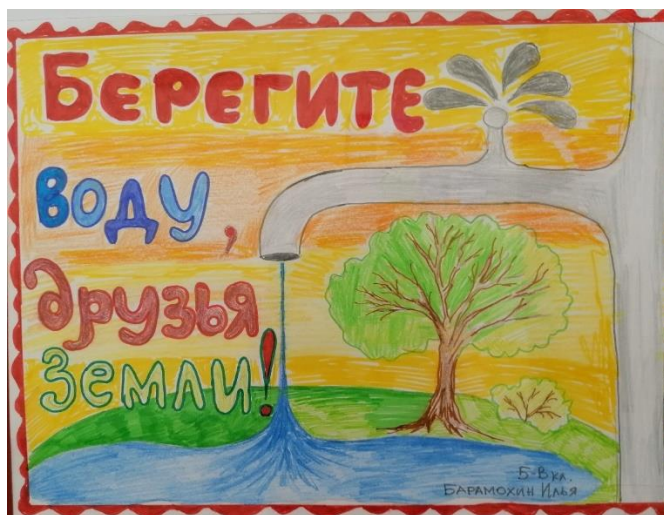 БЕРЕГИТЕ
ВОДУ,
друзья
Земли!
5-В кл.
БАРАМОХИН ИЛЬЯ